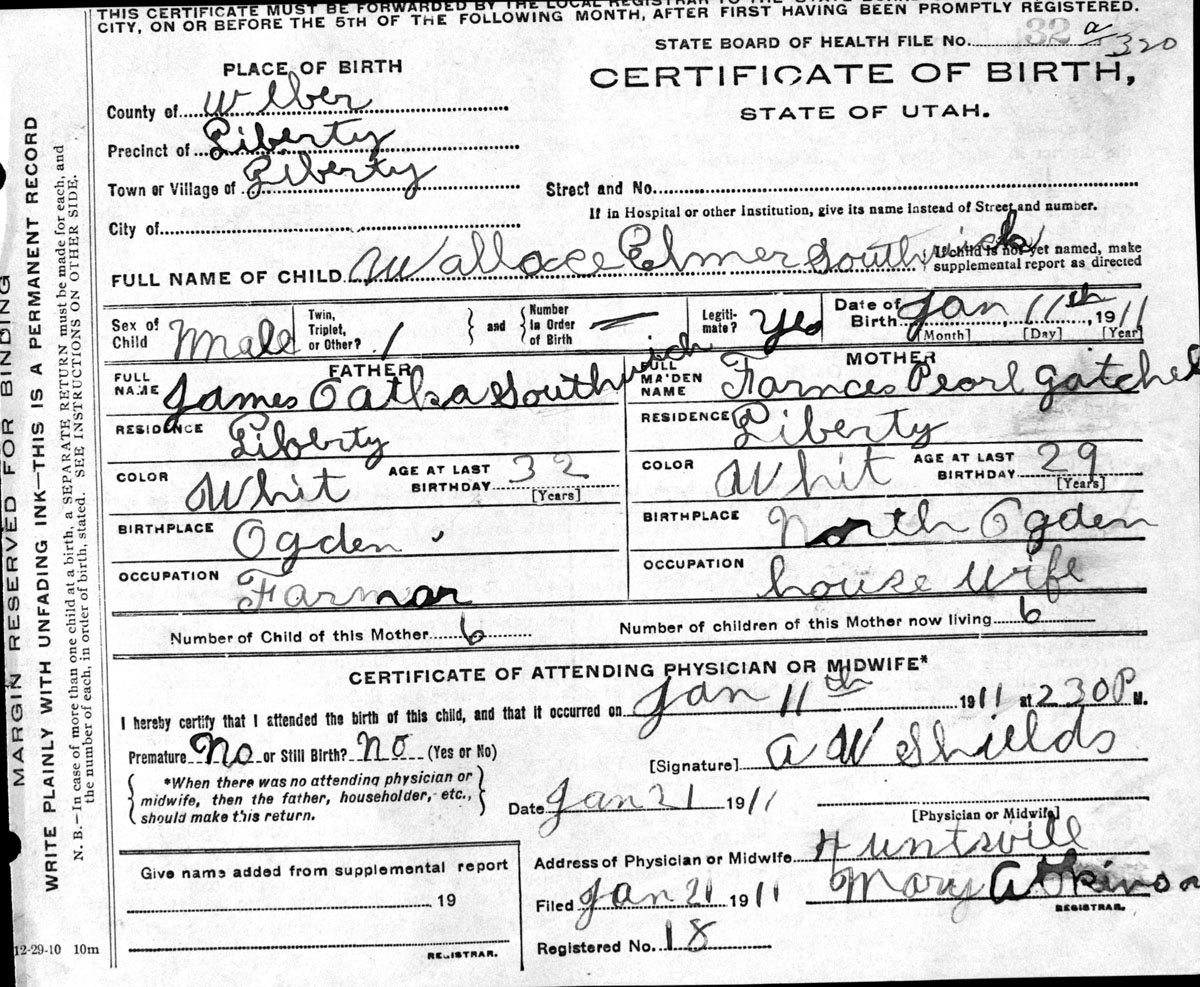 THIS CERTIFICATE MUST BE FORWARDED BY THE LOCAL REGISTRAR TO THE STATE
CITY, ON OR BEFORE THE 5TH OF THE FOLLOWING MONTH, AFTER FIRST HAVING BEEN PROMPTLY REGISTERED.
STATE BOARD OF HEALTH FILE No. 32 a 320
PLACE OF BIRTH
CERTIFICATE OF BIRTH,
STATE OF UTAH.
County of Weber
Precinct of Liberty
Town or Village of Liberty
Street and No.
If in Hospital or other Institution, give its name instead of Street and number.
City of
FULL NAME OF CHILD Wallace Elmer Southwick
If child is not yet named, make
supplemental report as directed
Sex of Child Male
Twin, Triplet, or Other? 1
and Number in Order of Birth
Legiti-mate? Yes
Date of Birth Jan 11th, 1911
[Month] [Day] [Year]
FATHER
MOTHER
FULL NAME James Oatha Southwick
FULL MAIDEN NAME Farnces Pearl Gatchel
RESIDENCE Liberty
RESIDENCE Liberty
COLOR Whit AGE AT LAST BIRTHDAY 32 [Years]
COLOR Whit AGE AT LAST BIRTHDAY 29 [Years]
BIRTHPLACE Ogden
BIRTHPLACE North Ogden
OCCUPATION Farmar
OCCUPATION house wife
Number of Child of this Mother 6
Number of children of this Mother now living 6
CERTIFICATE OF ATTENDING PHYSICIAN OR MIDWIFE*
I hereby certify that I attended the birth of this child, and that it occurred on Jan 11th 1911 at 230 P M.
Premature No or Still Birth? No (Yes or No)
[Signature] A W Shields
*When there was no attending physician or
midwife, then the father, householder, etc.,
should make this return.
Date Jan 21 1911
[Physician or Midwife]
Give name added from supplemental report
19
REGISTRAR.
Address of Physician or Midwife Huntsvill
Filed Jan 21 1911 Mary Atkinson
REGISTRAR.
Registered No. 18
12-29-10 10m
MARGIN RESERVED FOR BINDING
WRITE PLAINLY WITH UNFADING INK—THIS IS A PERMANENT RECORD
N. B.—In case of more than one child at a birth, a SEPARATE RETURN must be made for each, and
the number of each, in order of birth, stated. SEE INSTRUCTIONS ON OTHER SIDE.